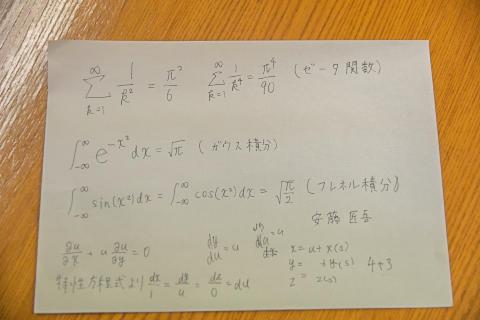 ∞ ∑ k=1 1/k² = π²/6 ∞ ∑ k=1 1/k⁴ = π⁴/90 (ゼータ関数)
∫_{-∞}^{∞} e^{-x²}dx = √π (ガウス積分)
∫_{-∞}^{∞} sin(x²)dx = ∫_{-∞}^{∞} cos(x²)dx = √(π/2) (フレネル積分)
安藤匠吾
∂u/∂x + u ∂u/∂y = 0
dy/du = u
特性方程式より dx/1 = dy/u = dz/0 = du